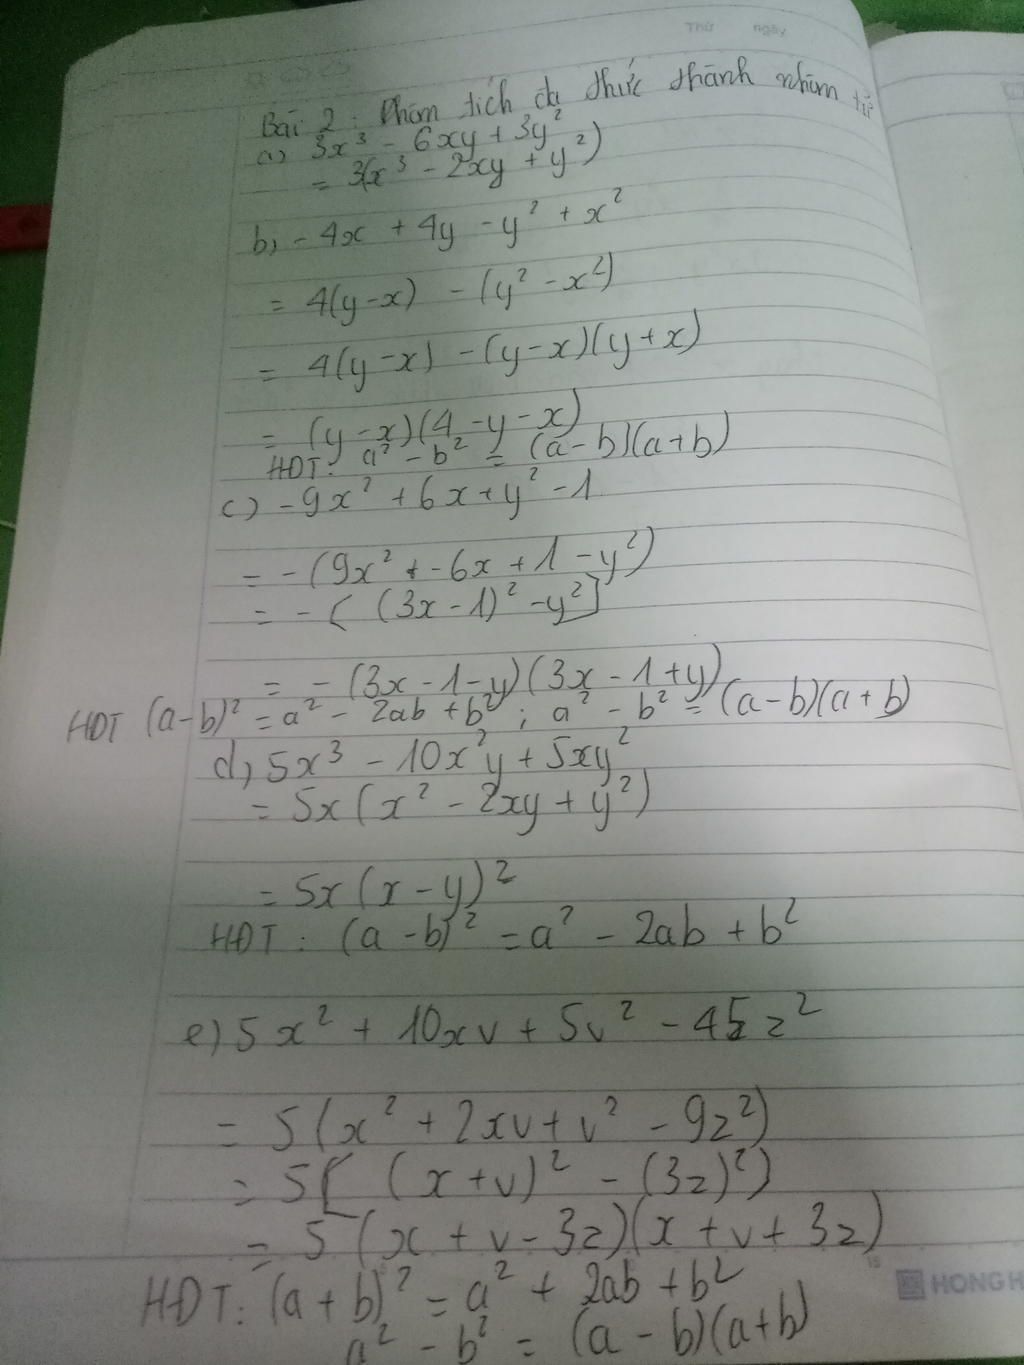 Thứ ngày
Bài 2: Phâm tích đa thức thành nhâm tử
a) 3x³ - 6xy + 3y²
= 3(x³ - 2xy + y²)
b, - 4x + 4y - y² + x²
= 4(y-x) - (y² - x²)
= 4(y-x) - (y-x)(y+x)
= (y-x)(4-y-x)
HĐT: a² - b² = (a-b)(a+b)
c) -9x² + 6x + y² - 1
= -(9x² + -6x + 1 - y²)
= - [ (3x - 1)² - y²]
= - (3x - 1 - y)(3x - 1 + y)
HĐT (a-b)² = a² - 2ab + b² ; a² - b² = (a-b)(a+b)
d, 5x³ - 10x²y + 5xy²
= 5x(x² - 2xy + y²)
= 5x(x-y)²
HĐT: (a-b)² = a² - 2ab + b²
e) 5x² + 10xv + 5v² - 45z²
= 5(x² + 2xv + v² - 9z²)
= 5[ (x+v)² - (3z)²)
= 5 (x + v - 3z)(x + v + 3z)
15 HONG H
HĐT: (a + b)² = a² + 2ab + b²
a² - b² = (a - b)(a+b)